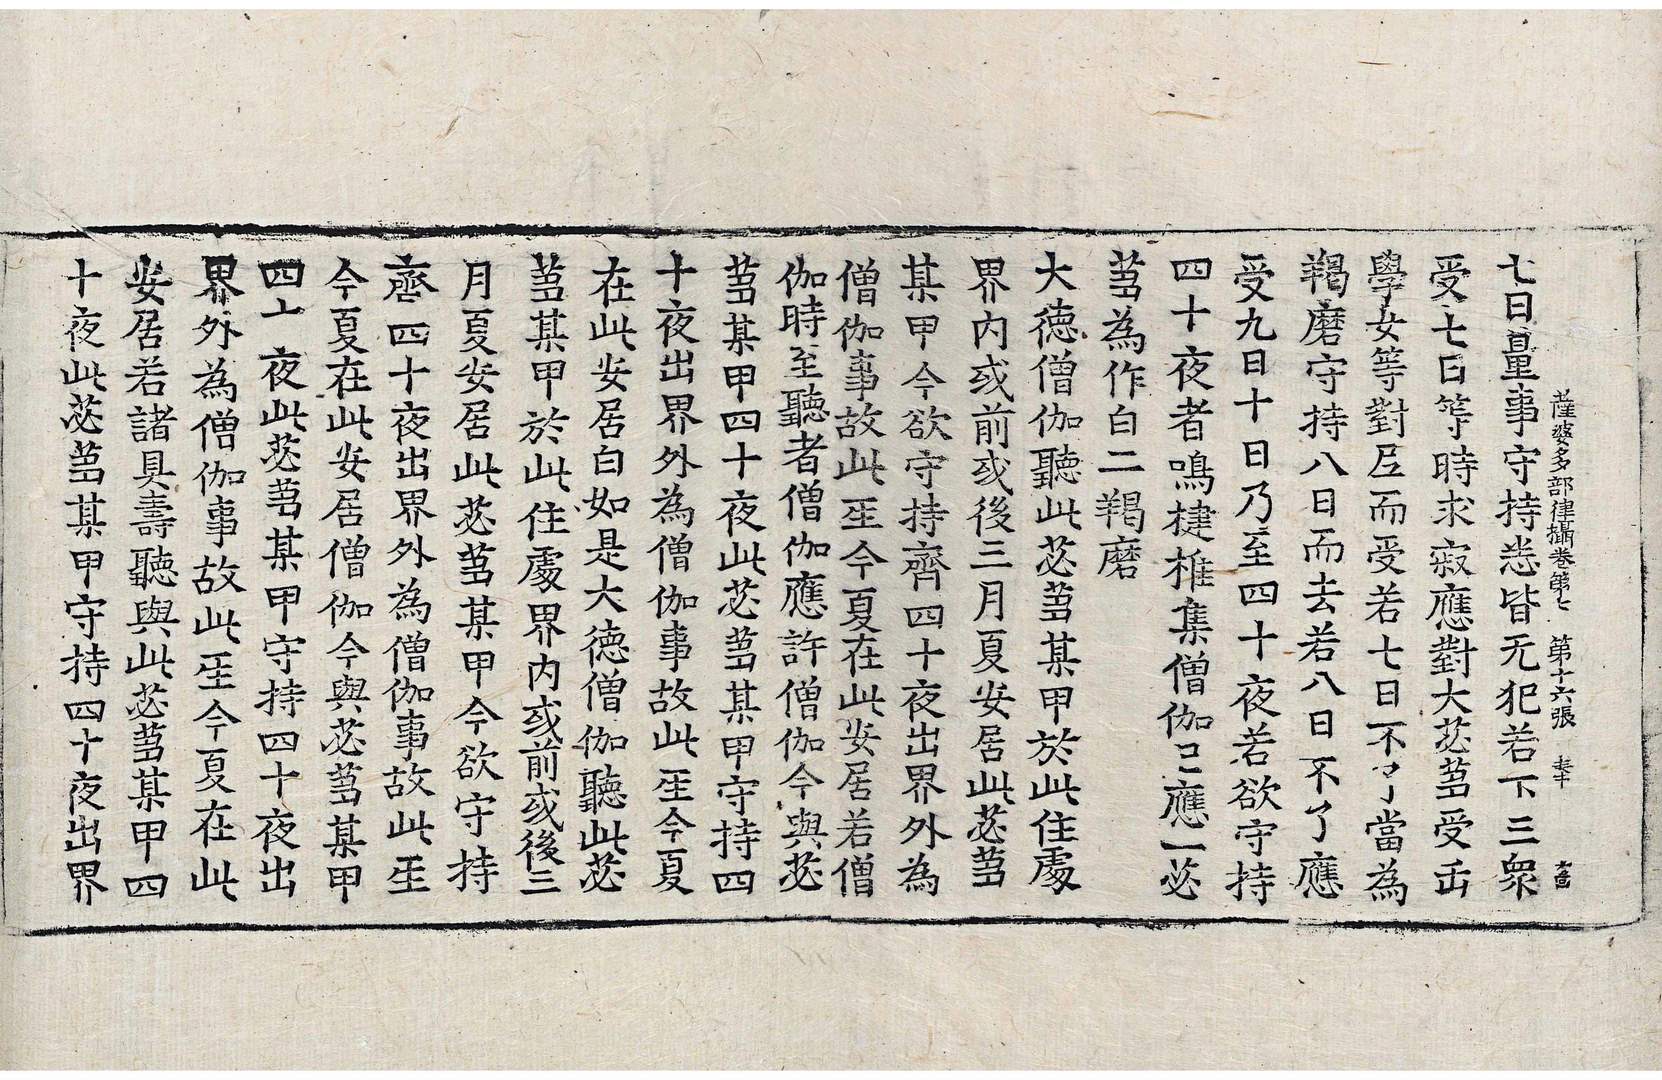 薩婆多部律攝卷第七 第十六張
七日量事守持悉皆无犯若下三衆
受七日等時求寂應對大苾芻受𠙺
學女等對尼而受若七日不了當為
羯磨守持八日而去若八日不了應
受九日十日乃至四十夜若欲守持
四十夜者鳴揵椎集僧伽〻應一苾
芻為作白二羯磨
大德僧伽聽此苾芻某甲於此住處
界內或前或後三月夏安居此苾芻
某甲今欲守持齊四十夜出界外為
僧伽事故此𤯔今夏在此安居若僧
伽時至聽者僧伽應許僧伽今與苾
芻某甲四十夜此苾芻某甲守持四
十夜出界外為僧伽事故此𤯔今夏
在此安居白如是大德僧伽聽此苾
芻某甲於此住處界內或前或後三
月夏安居此苾芻某甲今欲守持
齊四十夜出界外為僧伽事故此𤯔
今夏在此安居僧伽今與苾芻某甲
四十夜此苾芻某甲守持四十夜出
界外為僧伽事故此𤯔今夏在此
安居若諸具壽聽與此苾芻某甲四
十夜此苾芻某甲守持四十夜出界